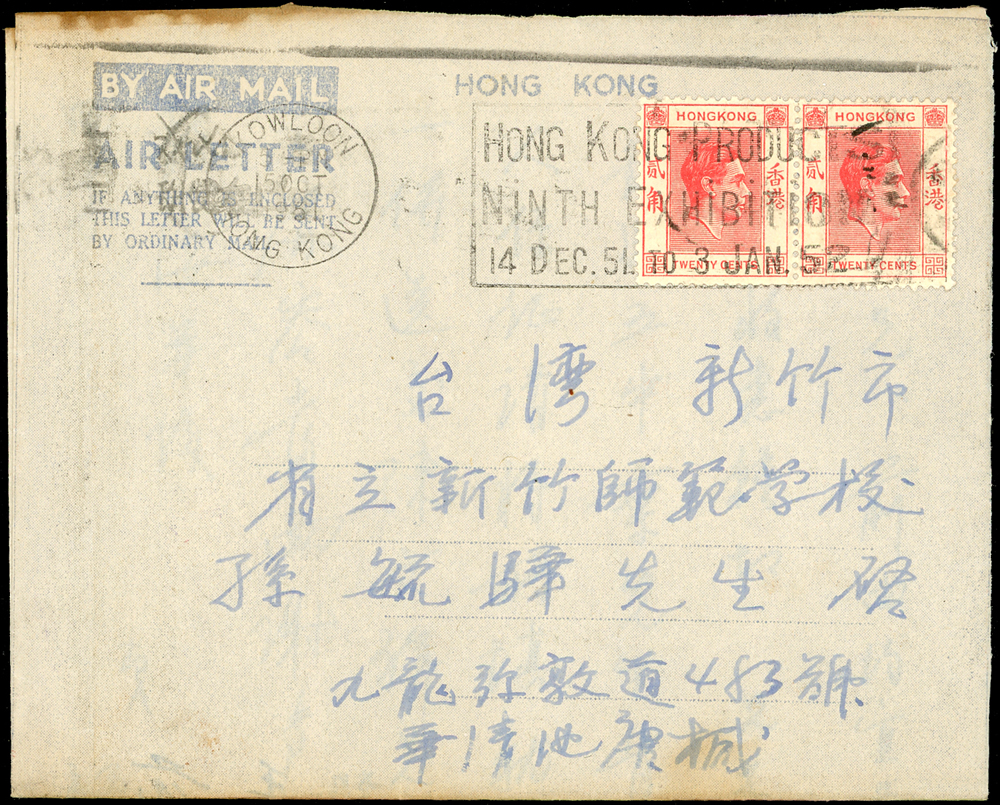 BY AIR MAIL
HONG KONG
AIR LETTER
IF ANYTHING IS ENCLOSED
THIS LETTER WILL BE SENT
BY ORDINARY MAIL.
KOWLOON
15 OCT
HONG KONG
HONG KONG PRODUCTS
NINTH EXHIBITION
14 DEC. 51. TO 3 JAN. 52
HONGKONG
貳角
香港
TWENTY CENTS
HONGKONG
貳角
香港
TWENTY CENTS
台灣 新竹市
省立新竹師範学校
孫毓驊先生啓
九龍弥敦道483號
華清池康械